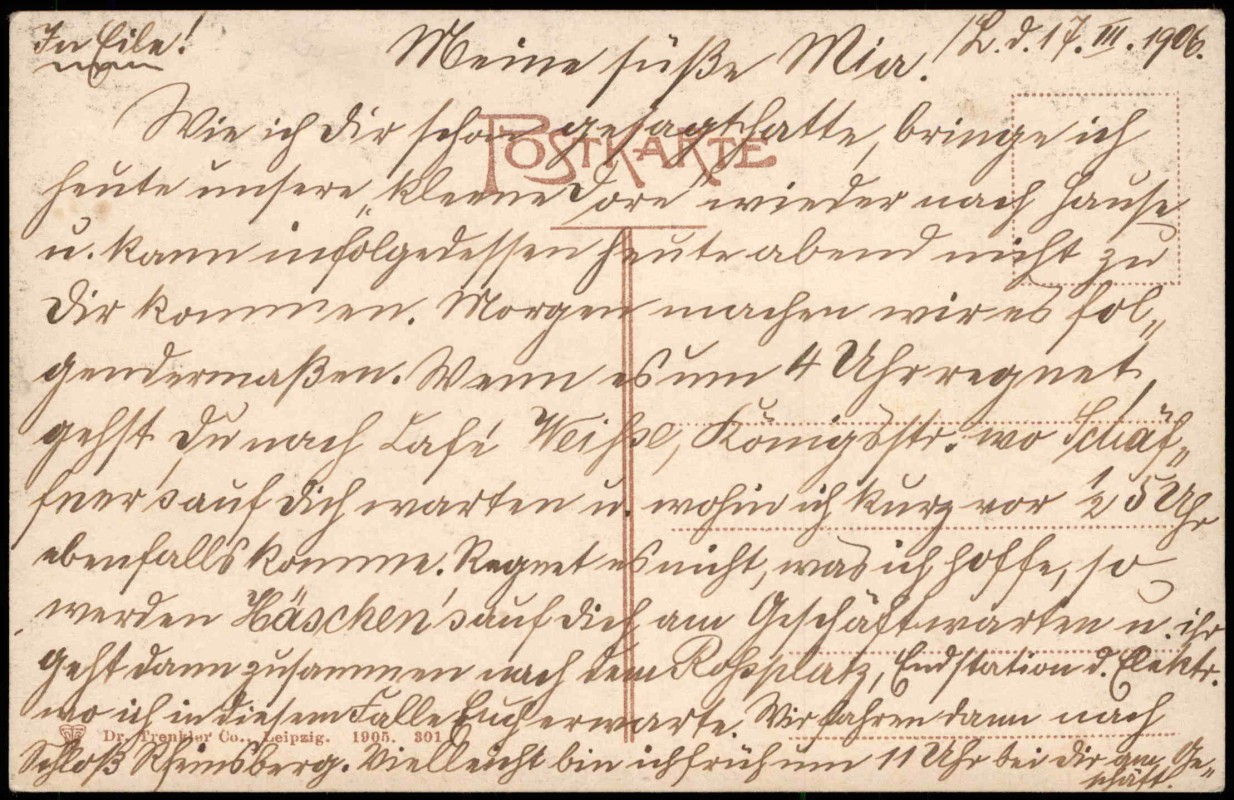 In Eile!
L. d. 17. III. 1906.
Meine süße Mia!
POSTKARTE
Wie ich Dir schon gesagt hatte, bringe ich
heute unsere „kleene Dore" wieder nach Hause
u. kann infolgedessen heute abend nicht zu
Dir kommen. Morgen machen wir es fol„
gendermaßen. Wenn es um 4 Uhr regnet,
gehst Du nach Café Weiße, Königsstr. wo Schäf„
fner's auf Dich warten u. wohin ich kurz vor ½ 5 Uhr
ebenfalls komme. Regnet es nicht, was ich hoffe, so
werden Häschen's auf Dich am Geschäft warten u. ihr
geht dann zusammen nach dem Roßplatz, Endstation d. Elektr.
wo ich in diesem Falle Euch erwarte. Wir fahren dann nach
Dr. Trenkler Co., Leipzig. 1905. 301
Schloß Rheinsberg. Vielleicht bin ich früh um 11 Uhr bei Dir am Ge„
schäft.